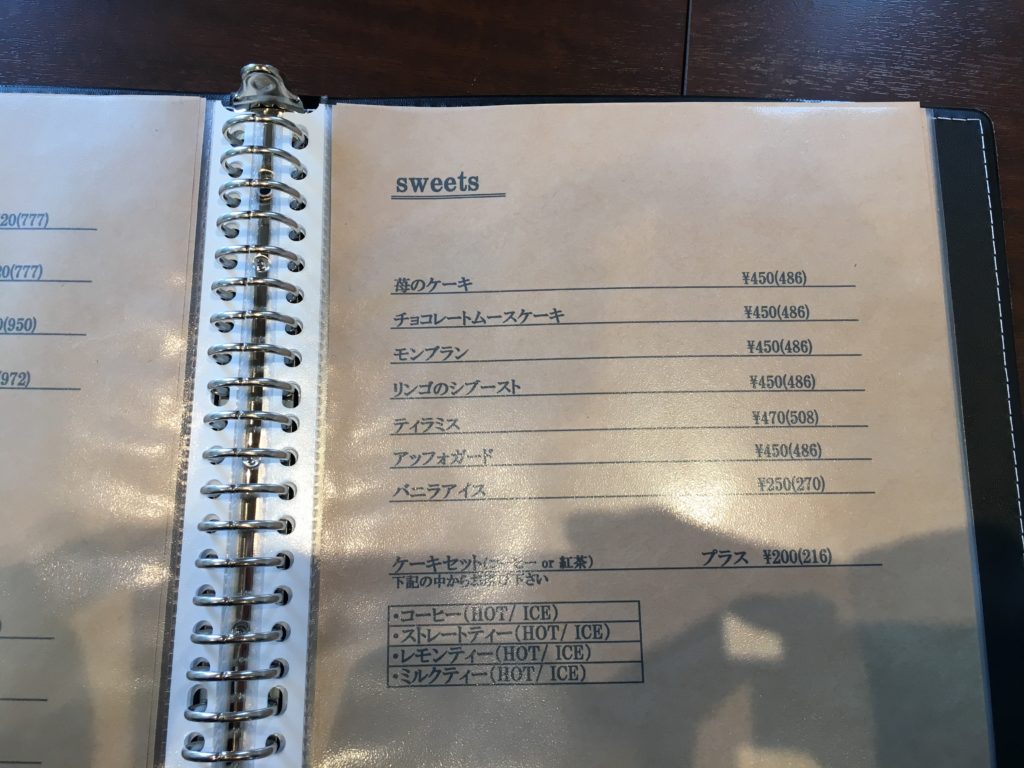 20(777)
20(777)
(950)
(972)
sweets
苺のケーキ ¥450(486)
チョコレートムースケーキ ¥450(486)
モンブラン ¥450(486)
リンゴのシブースト ¥450(486)
ティラミス ¥470(508)
アッフォガード ¥450(486)
バニラアイス ¥250(270)
ケーキセット(コーヒー or 紅茶) プラス ¥200(216)
下記の中からお選び下さい
・コーヒー(HOT/ ICE)
・ストレートティー(HOT/ ICE)
・レモンティー(HOT/ ICE)
・ミルクティー(HOT/ ICE)